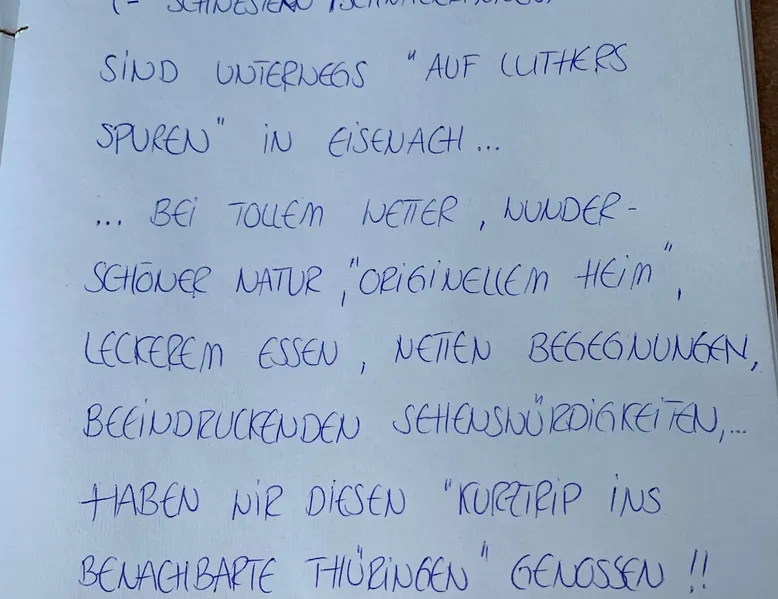 (= SCHWESTERN
SIND UNTERWEGS "AUF LUTHERS
SPUREN" IN EISENACH...
... BEI TOLLEM WETTER, WUNDER-
SCHÖNER NATUR, "ORIGINELLEM HEIM",
LECKEREM ESSEN, NETTEN BEGEGNUNGEN,
BEEINDRUCKENDEN SEHENSWÜRDIGKEITEN,...
HABEN WIR DIESEN "KURZTRIP INS
BENACHBARTE THÜRINGEN" GENOSSEN!!